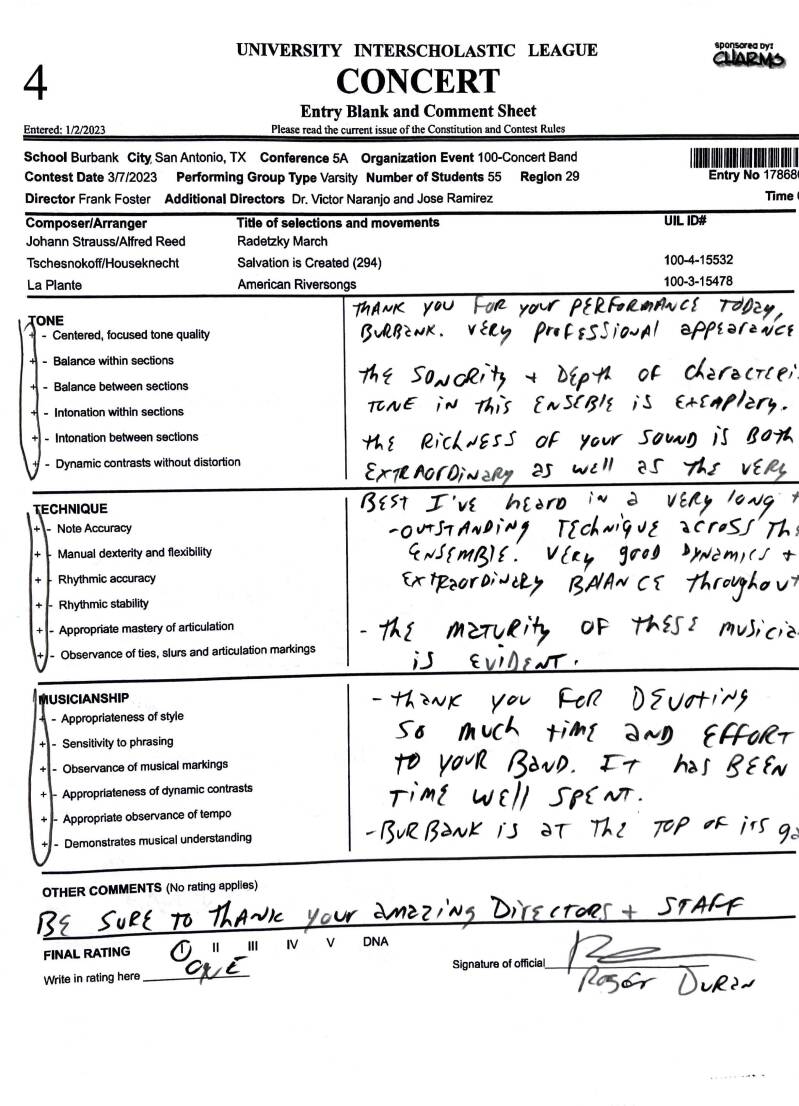 4
UNIVERSITY INTERSCHOLASTIC LEAGUE
sponsored by:
CHARMS
CONCERT
Entry Blank and Comment Sheet
Entered: 1/2/2023
Please read the current issue of the Constitution and Contest Rules
School Burbank City, San Antonio, TX Conference 5A Organization Event 100-Concert Band
Contest Date 3/7/2023 Performing Group Type Varsity Number of Students 55 Region 29 Entry No 17868
Director Frank Foster Additional Directors Dr. Victor Naranjo and Jose Ramirez Time
Composer/Arranger Title of selections and movements UIL ID#
Johann Strauss/Alfred Reed Radetzky March
Tschesnokoff/Houseknecht Salvation is Created (294) 100-4-15532
La Plante American Riversongs 100-3-15478
TONE
+ - Centered, focused tone quality
+ - Balance within sections
+ - Balance between sections
+ - Intonation within sections
+ - Intonation between sections
+ - Dynamic contrasts without distortion
THANK YOU FOR YOUR PERFORMANCE TODAY,
BURBANK. VERY PROFESSIONAL APPEARANCE
THE SONORITY + DEPTH OF CHARACTERI
TONE IN THIS ENSEBLE IS EXEAPLARY.
THE RICHNESS OF YOUR SOUND IS BOTH
EXTRAORDINARY AS WELL AS THE VERY
BEST I'VE HEARD IN A VERY LONG
TECHNIQUE
+ - Note Accuracy
+ - Manual dexterity and flexibility
+ - Rhythmic accuracy
+ - Rhythmic stability
+ - Appropriate mastery of articulation
+ - Observance of ties, slurs and articulation markings
-OUTSTANDING TECHNIQUE ACROSS THE
ENSEMBLE. VERY GOOD DYNAMICS +
EXTRAORDINARY BALANCE THROUGHOUT
- THE MATURITY OF THESE MUSICIA
IS EVIDENT.
MUSICIANSHIP
+ - Appropriateness of style
+ - Sensitivity to phrasing
+ - Observance of musical markings
+ - Appropriateness of dynamic contrasts
+ - Appropriate observance of tempo
+ - Demonstrates musical understanding
- THANK YOU FOR DEVOTING
SO MUCH TIME AND EFFORT
TO YOUR BAND. IT HAS BEEN
TIME WELL SPENT.
-BURBANK IS AT THE TOP OF ITS GA
OTHER COMMENTS (No rating applies)
BE SURE TO THANK YOUR AMAZING DIRECTORS + STAFF
FINAL RATING I II III IV V DNA
Write in rating here ONE
Signature of official
ROGER DURAN